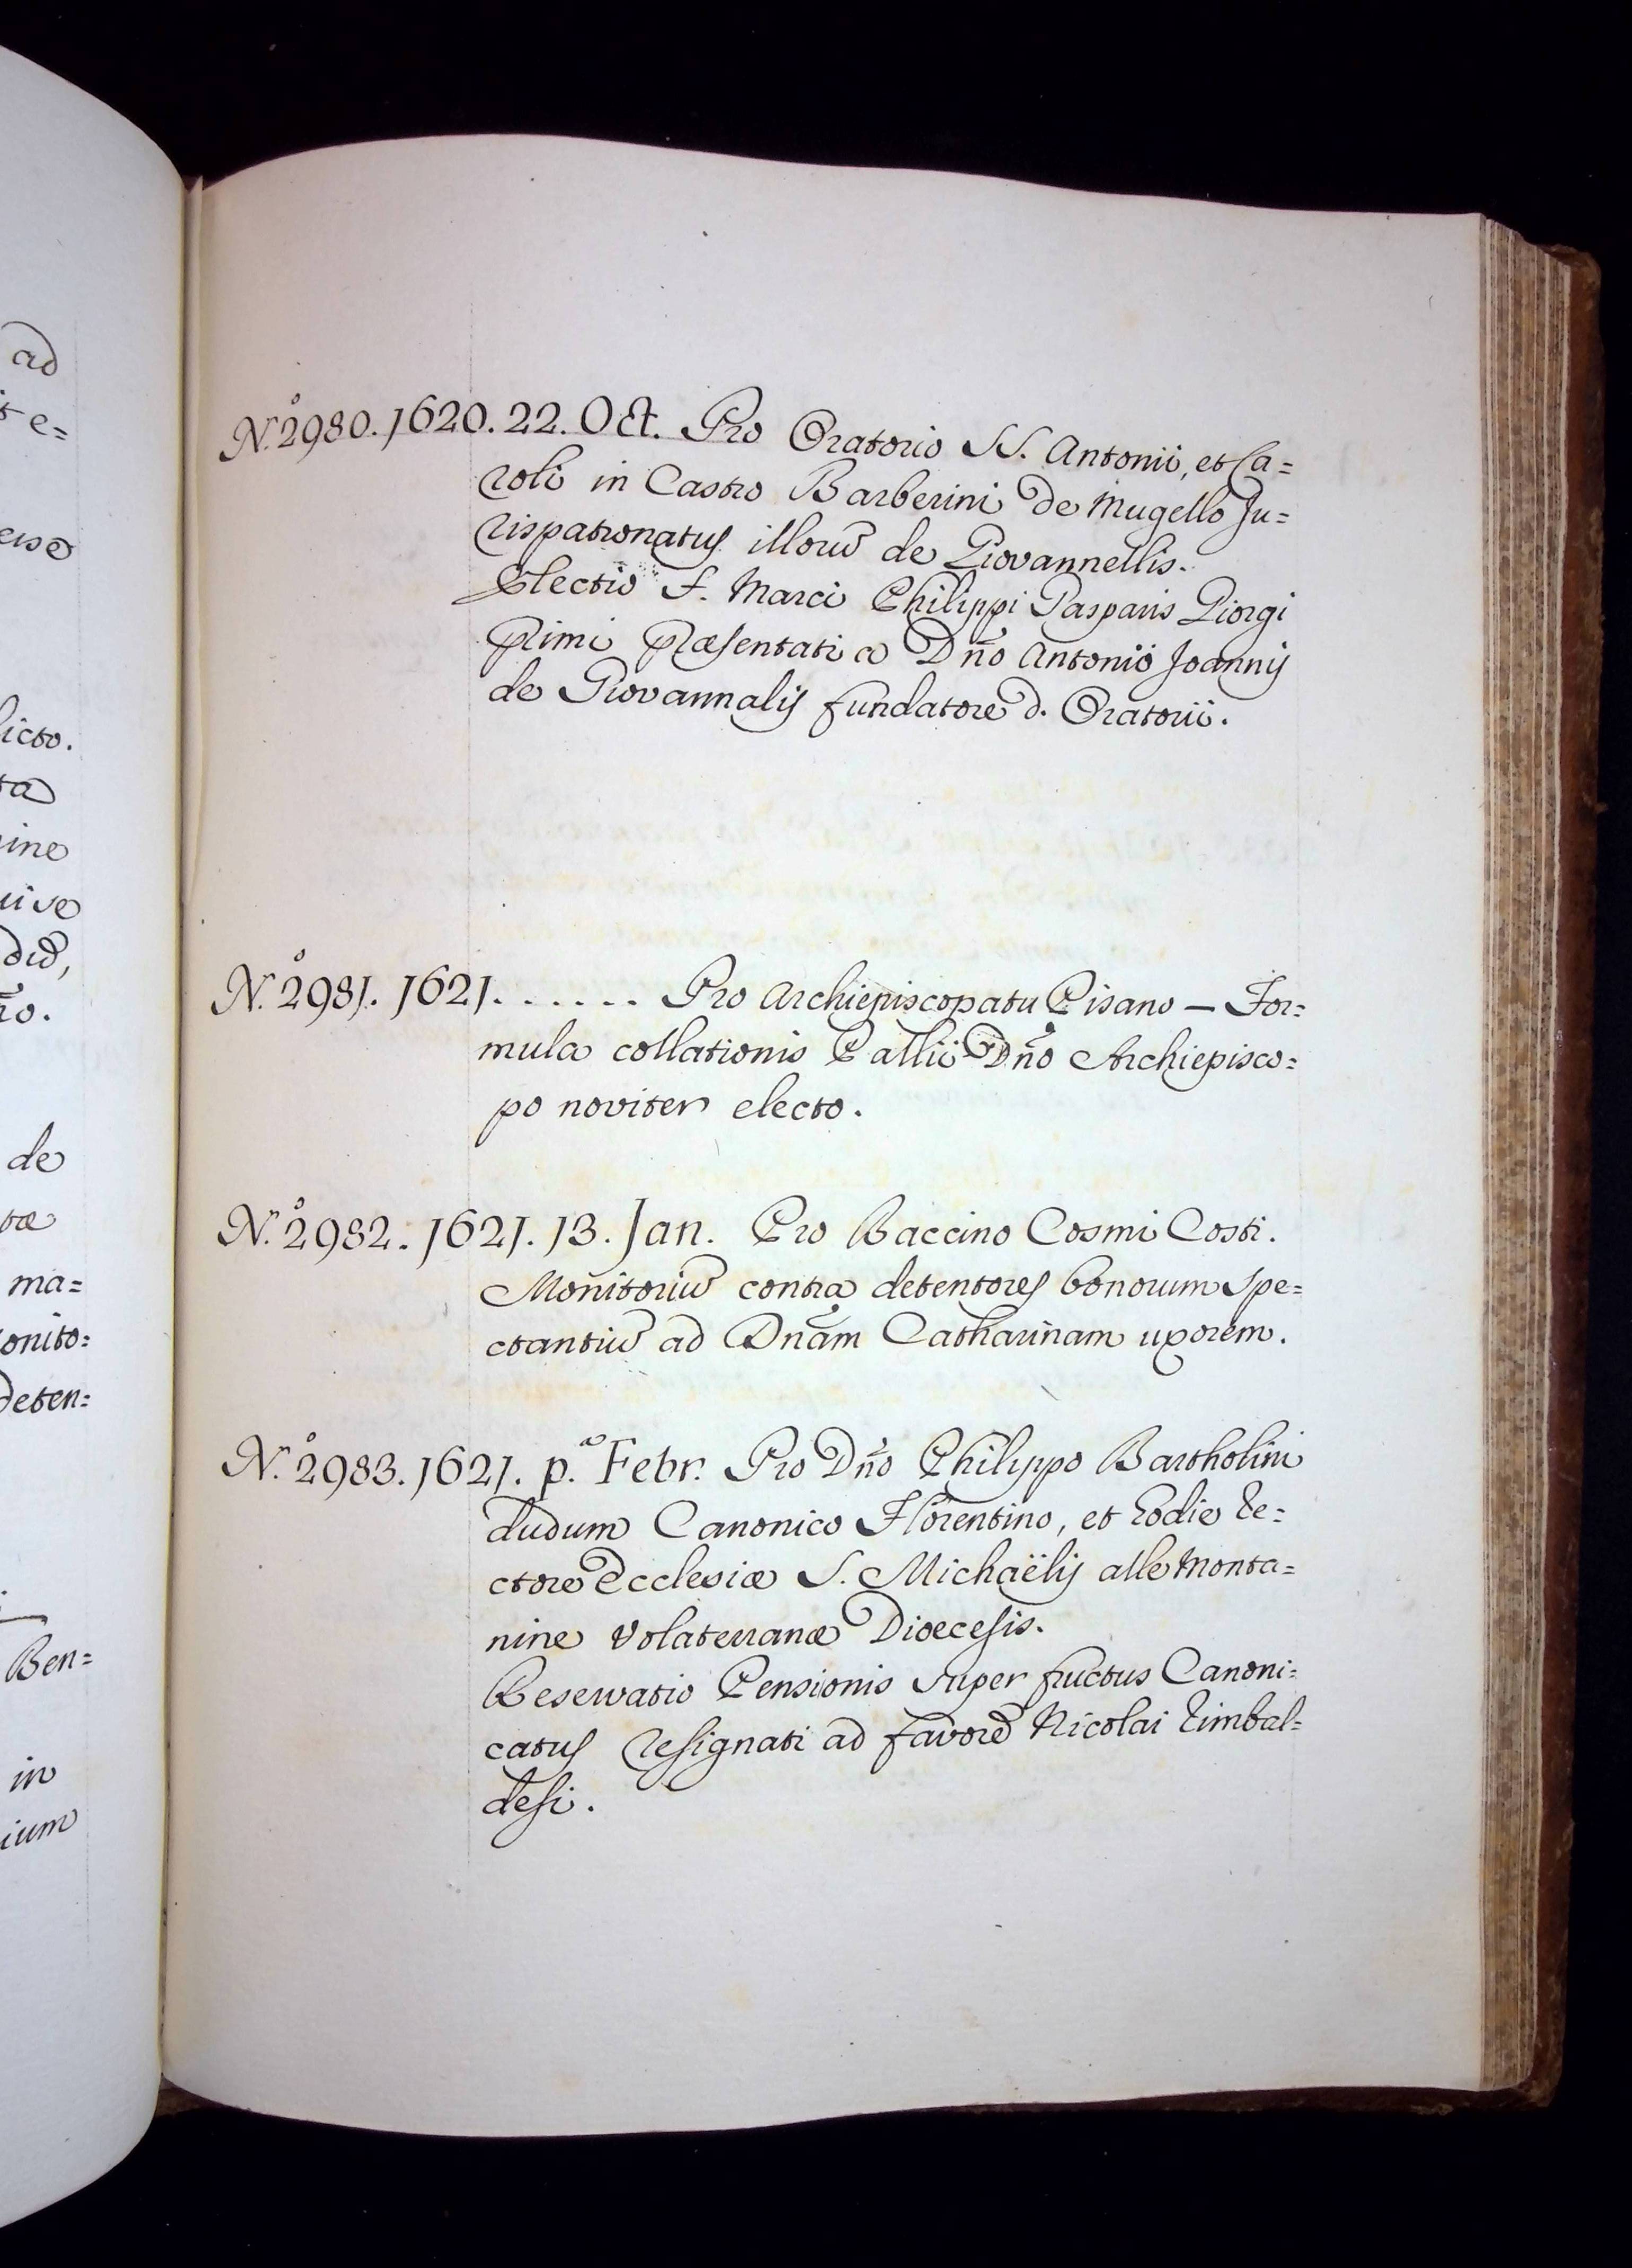 ad
te=
erse
licto.
ta
ine
uive
diũ,
ro.
de
tæ
ma=
onito=
deten=
Ben=
in
ium
N.º 2980. 1620. 22. Oct. Pro Oratorio SS. Antonii, et Ca=
roli in Castro Barberini de Mugello Ju=
rispatronatus illorũ de Giovannellis.
Electio f. Marci Philippi Gasparis Giorgi
primi præsentati a Dño Antonio Joannis
de Giovannalis fundatore d. Oratorii.
N.º 2981. 1621. . . . . . . Pro Archiepiscopatu Pisano — For=
mula collationis Pallii Dño Archiepisco=
po noviter electo.
N.º 2982. 1621. 13. Jan. Pro Baccino Cosmi Costi.
Monitoriũ contra detentores bonorum spe=
ctantiũ ad Dñam Catharinam uxorem.
N.º 2983. 1621. p.ª Febr. Pro Dño Philippo Bartholini
dudum Canonico Florentino, et hodie Re=
ctore Ecclesiæ S. Michaëlis alle Monta=
nine Volaterranæ Dioecesis.
Reservatio Pensionis super fructus Canoni=
catus resignati ad favorẽ Nicolai Rimbal=
desi.